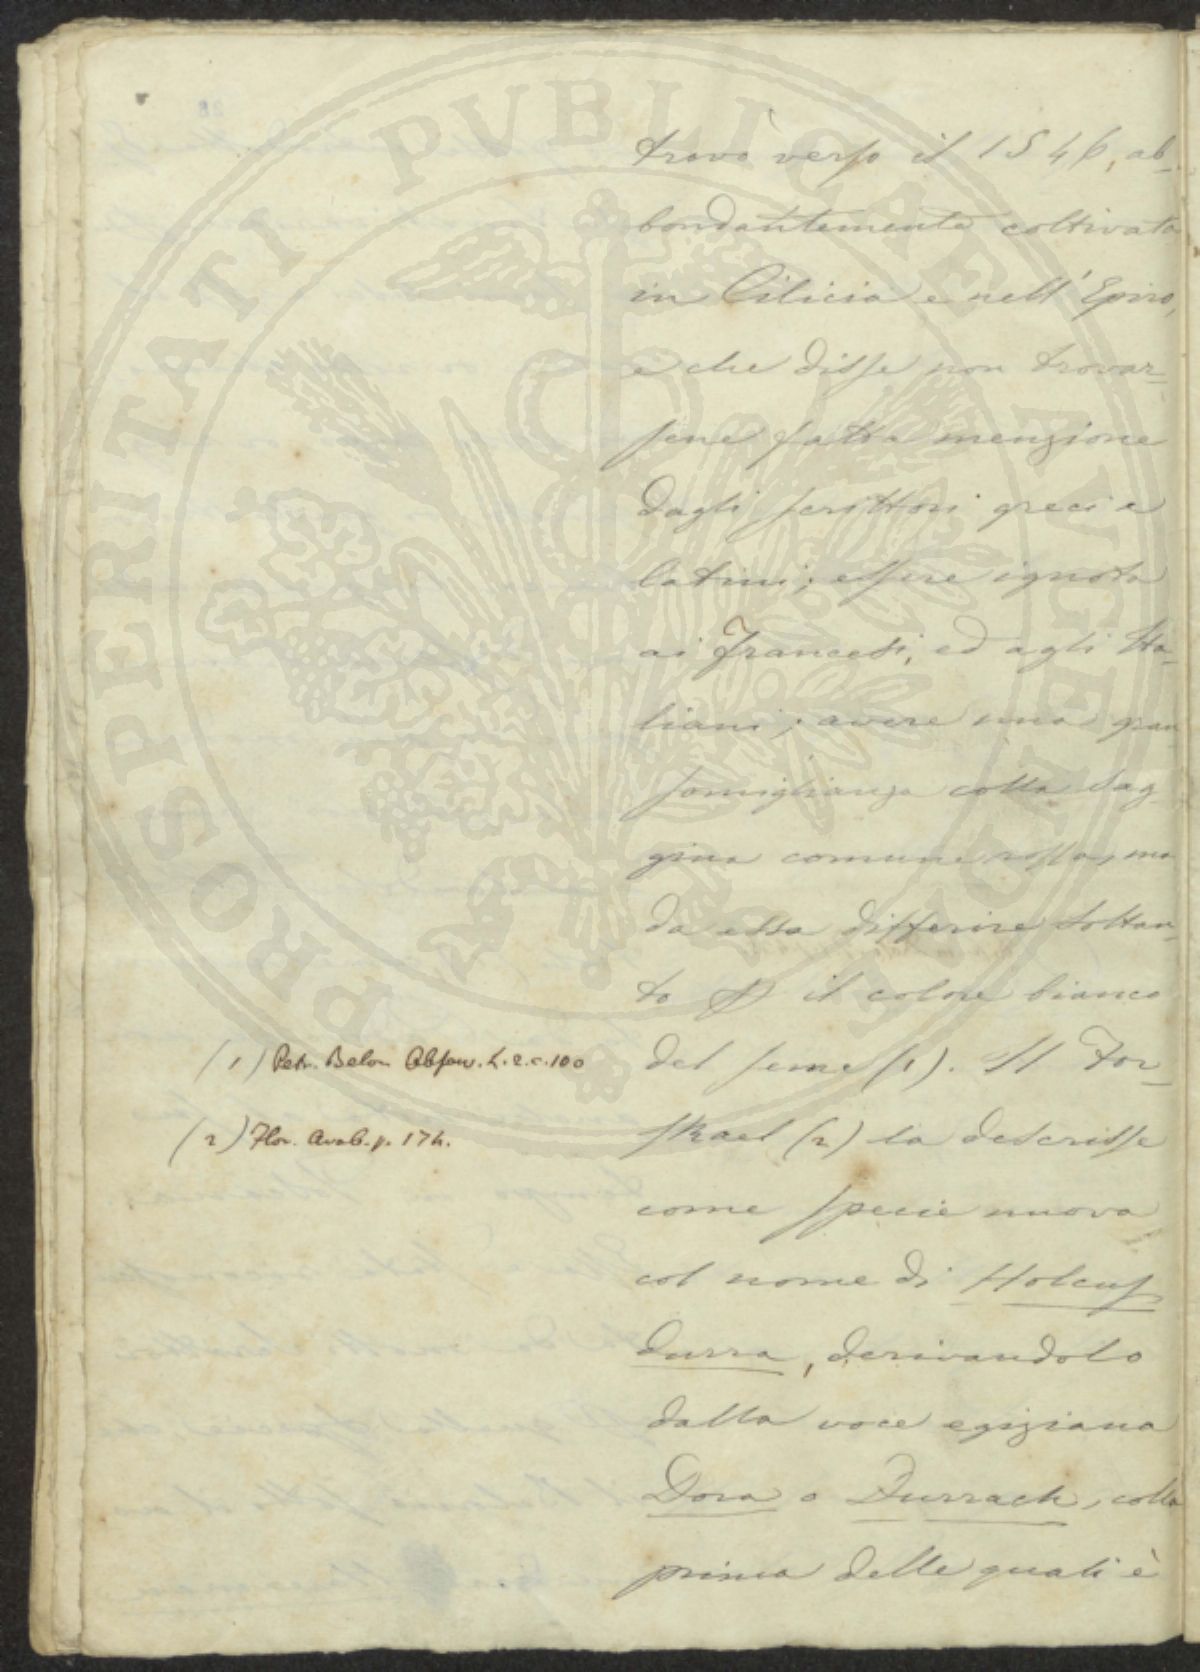 trovò verso il 1546, ab-
bondantemente coltivata
in Cilicia e nell'Epiro,
e che disse non trovar-
sene fatta menzione
dagli scrittori greci e
latini; essere ignota
ai Francesi, ed agli Ita-
liani; avere una gran
somiglianza colla sag-
gina comune rossa, ma
da essa differire soltan-
to il colore bianco
del seme (1). Il For-
skael (2) la descrisse
come specie nuova
col nome di Holcus
durra, derivandolo
dalla voce egiziana
Dora o Durrach, colla
prima delle quali è
(1) Petr. Belon. Observ. L. 2. c. 100
(2) Flor. Arab. p. 174.
PROSPERITATI PVBLICAE AVGENDAE